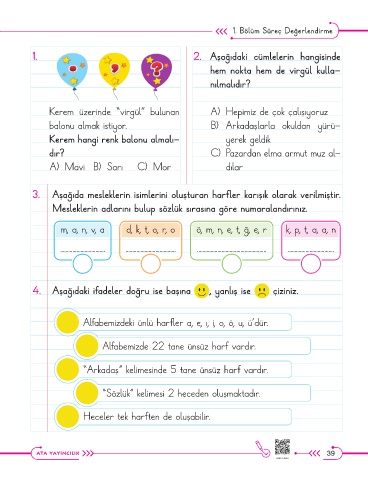 1. Bölüm Süreç Değerlendirme
1.
Kerem üzerinde “virgül” bulunan
balonu almak istiyor.
Kerem hangi renk balonu almalı-
dır?
A) Mavi B) Sarı C) Mor
2. Aşağıdaki cümlelerin hangisinde
hem nokta hem de virgül kulla-
nılmalıdır?
A) Hepimiz de çok çalışıyoruz
B) Arkadaşlarla okuldan yürü-
yerek geldik
C) Pazardan elma armut muz al-
dılar
3. Aşağıda mesleklerin isimlerini oluşturan harfler karışık olarak verilmiştir.
Mesleklerin adlarını bulup sözlük sırasına göre numaralandırınız.
m, a, n, v, a
d, k, t, o, r, o
ö, m, n, e, t, ğ, e, r
k, p, t, a, a, n
4. Aşağıdaki ifadeler doğru ise başına , yanlış ise çiziniz.
Alfabemizdeki ünlü harfler a, e, ı, i, o, ö, u, ü’dür.
Alfabemizde 22 tane ünsüz harf vardır.
“Arkadaş” kelimesinde 5 tane ünsüz harf vardır.
“Sözlük” kelimesi 2 heceden oluşmaktadır.
Heceler tek harften de oluşabilir.
ATA YAYINCILIK
39